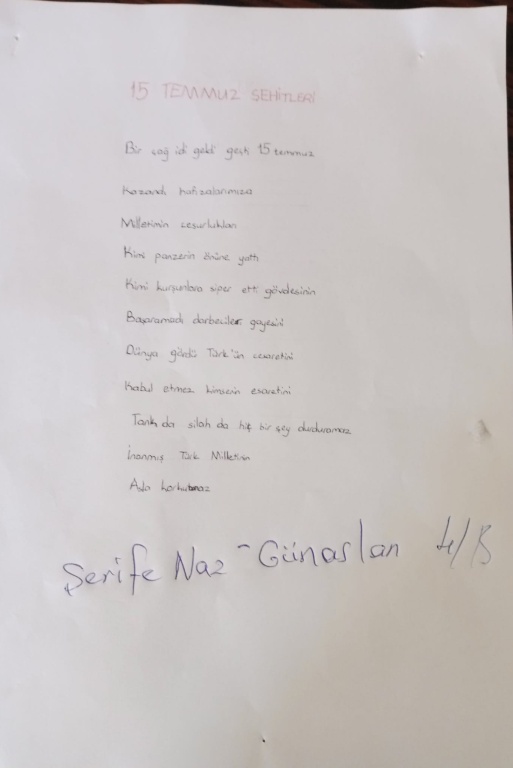 15 TEMMUZ ŞEHİTLERİ
Bir çağ idi geldi geçti 15 temmuz
Kazandı hafızalarımıza
Milletimin cesurlukları
Kimi panzerin önüne yattı
Kimi kurşunlara siper etti gövdesinin
Başaramadı darbeciler gayesini
Dünya gördü Türk'ün cesaretini
Kabul etmez kimsenin esaretini
Tank da silah da hiç bir şey durduramaz
İnanmış Türk Milletinin
Asla korkutmaz
Şerife Naz - Günaslan 4/B